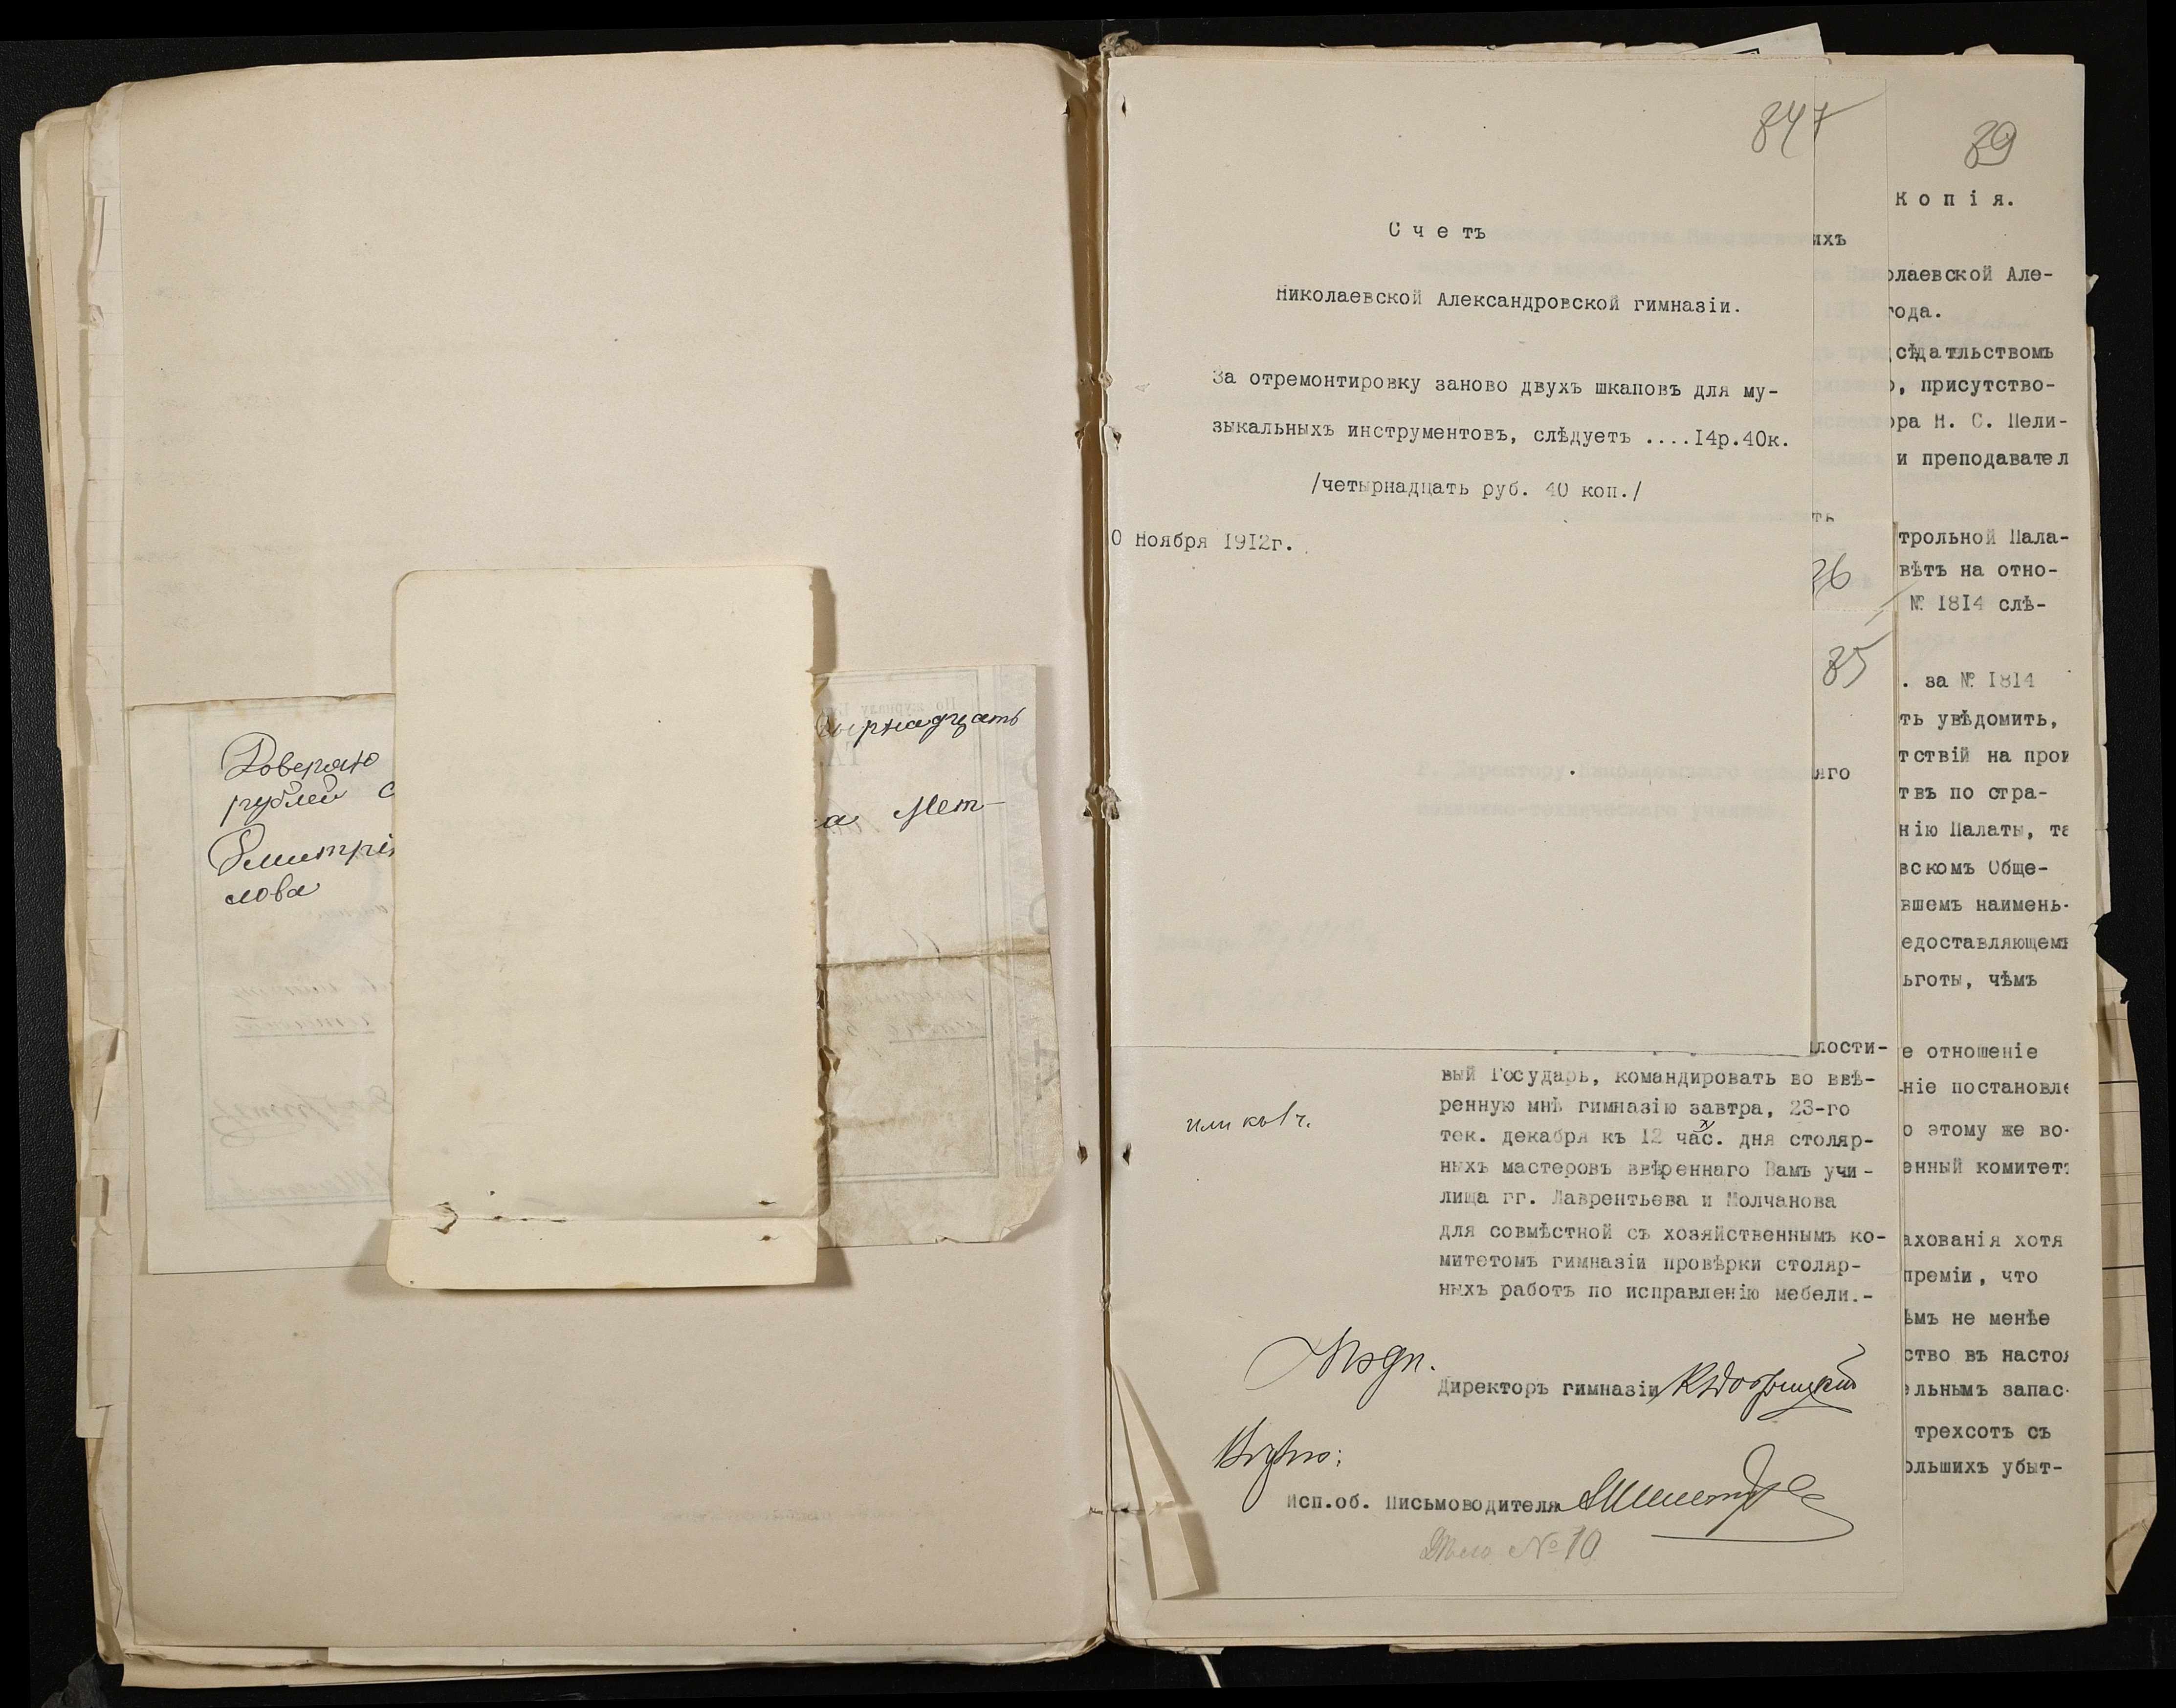 Доверяю
рублей с
Дмитрі
слова
ырнадцать
а Мет-
847
Счетъ
Николаевской Александровской гимназіи.
За отремонтировку заново двухъ шкаповъ для му-
зыкальныхъ инструментовъ, слѣдуетъ ....I4р.40к.
/четырнадцать руб. 40 коп./
0 Ноября I9I2г.
ихъ
ть
26
35
яго
лости-
вый Государь, командировать во ввѣ-
ренную мнѣ гимназію завтра, 23-го
тек. декабря къ I2 час. дня столяр-
ныхъ мастеровъ ввѣреннаго Вамъ учи-
лища гг. Лаврентьева и Молчанова
для совмѣстной съ хозяйственнымъ ко-
митетомъ гимназіи провѣрки столяр-
ныхъ работъ по исправленію мебели.-
или къ 1 ч.
Подп.
Директоръ гимназіи
Вѣрно:
Исп.об. Письмоводителя
Дѣло № 10
39
Копія.
олаевской Але-
года.
сѣдательствомъ
, присутство-
ра Н. С. Пели-
и преподавател
трольной Пала-
вѣтъ на отно-
№ I8I4 слѣ-
. за № I8I4
ть увѣдомить,
тствій на прои
твъ по стра-
нію Палаты, та
вскомъ Обще-
вшемъ наимень-
едоставляющемъ
ьготы, чѣмъ
е отношеніе
ніе постановле
о этому же во-
енный комитетъ
ахованія хотя
преміи, что
ѣмъ не менѣе
ство въ настоя
ельнымъ запас-
трехсотъ съ
ольшихъ убыт-